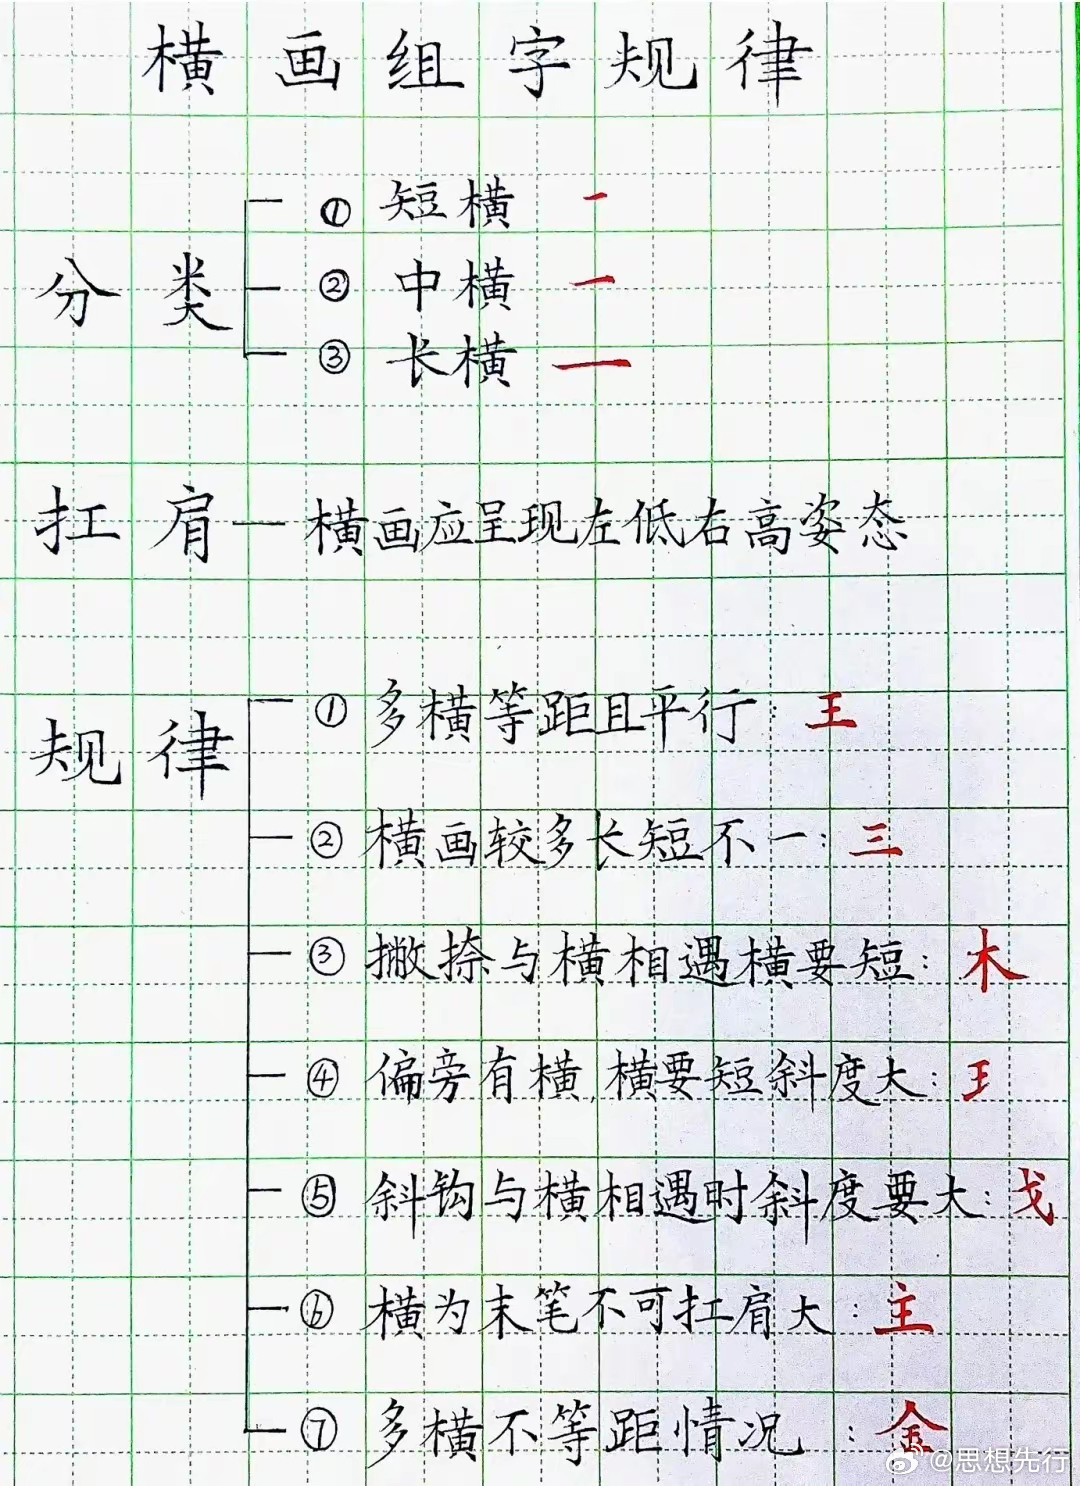 横画组字规律
① 短横 一
分类 ② 中横 一
③ 长横 一
扛肩 — 横画应呈现左低右高姿态
① 多横等距且平行：王
规律
② 横画较多长短不一：三
③ 撇捺与横相遇横要短：木
④ 偏旁有横，横要短斜度大：王
⑤ 斜钩与横相遇时斜度要大：戈
⑥ 横为末笔不可扛肩大：主
⑦ 多横不等距情况：金
@思想先行